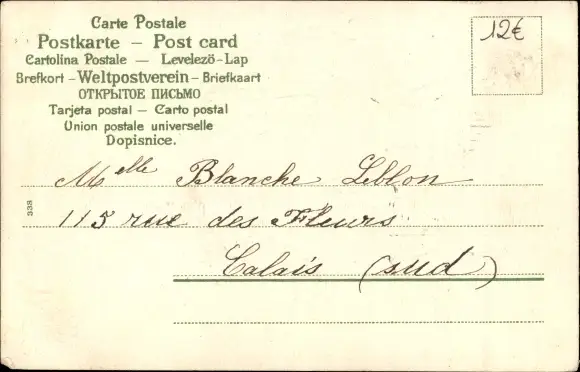 Carte Postale
Postkarte – Post card
Cartolina Postale – Levelező-Lap
Brefkort – Weltpostverein – Briefkaart
ОТКРЫТОЕ ПИСЬМО
Tarjeta postal – Carto postal
Union postale universelle
Dopisnice.
12€
Melle Blanche Leblon
338
115 rue des Fleurs
Calais (sud)